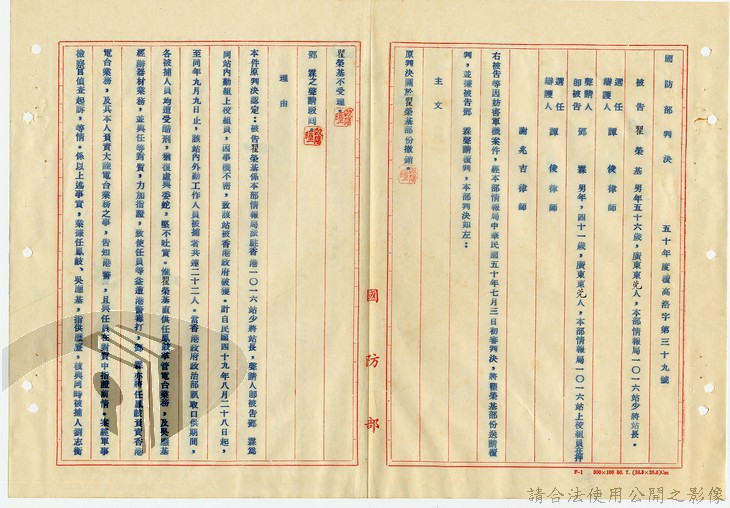 國防部判決
五十年度覆高洛字第三十九號
被告　翟榮基　男年五十六歲，廣東東莞人，本部情報局一〇一六站少將站長。
選任辯護人　譚俊律師
聲請人即被告　鄧霖　男年，四十一歲，廣東東莞人，本部情報局一〇一六站上校組員在押
選任辯護人　譚俊律師
謝兆吉律師
右被告等因妨害軍機案件，經本部情報局中華民國五十年七月三日初審判決，將翟榮基部份送請覆
判，並據被告鄧霖聲請覆判，本部判決如左：
主文
原判決關於翟榮基部份撤銷。
翟榮基不受理。
鄧霖之聲請駁回。
理由
本件原判決認定：被告翟榮基係本部情報局派駐香港一〇一六站少將站長，聲請人即被告鄧霖為
同站內勤組上校組員，因事機不密，致該站被香港政府破獲。計自民國四十九年八月二十八日起，
至同年九月九日止，該站內外勤工作人員被捕者共達二十二人。當香港政府政治部訊取口供期間，
各被捕人員均遭受酷刑，猶復虛與委蛇，堅不吐實。惟翟榮基直供任鳳歧掌管電台業務，及吳應基
經辦器材業務，並與任等對質，力加指證，致使任員等益遭港警毒打，鄧霖亦將任鳳歧負責香港
電台業務，及其本人負責大陸電台業務之事，告知港警，且與任員在對質中指證前情。案經軍事
檢察官偵查起訴，等情。係以上述事實，業據任鳳歧、吳應基，指供歷歷，核與同時被捕人劉志衡
國防部
P-1　500×100 50. 7. (36.5×25.5)
請合法使用公開之影像